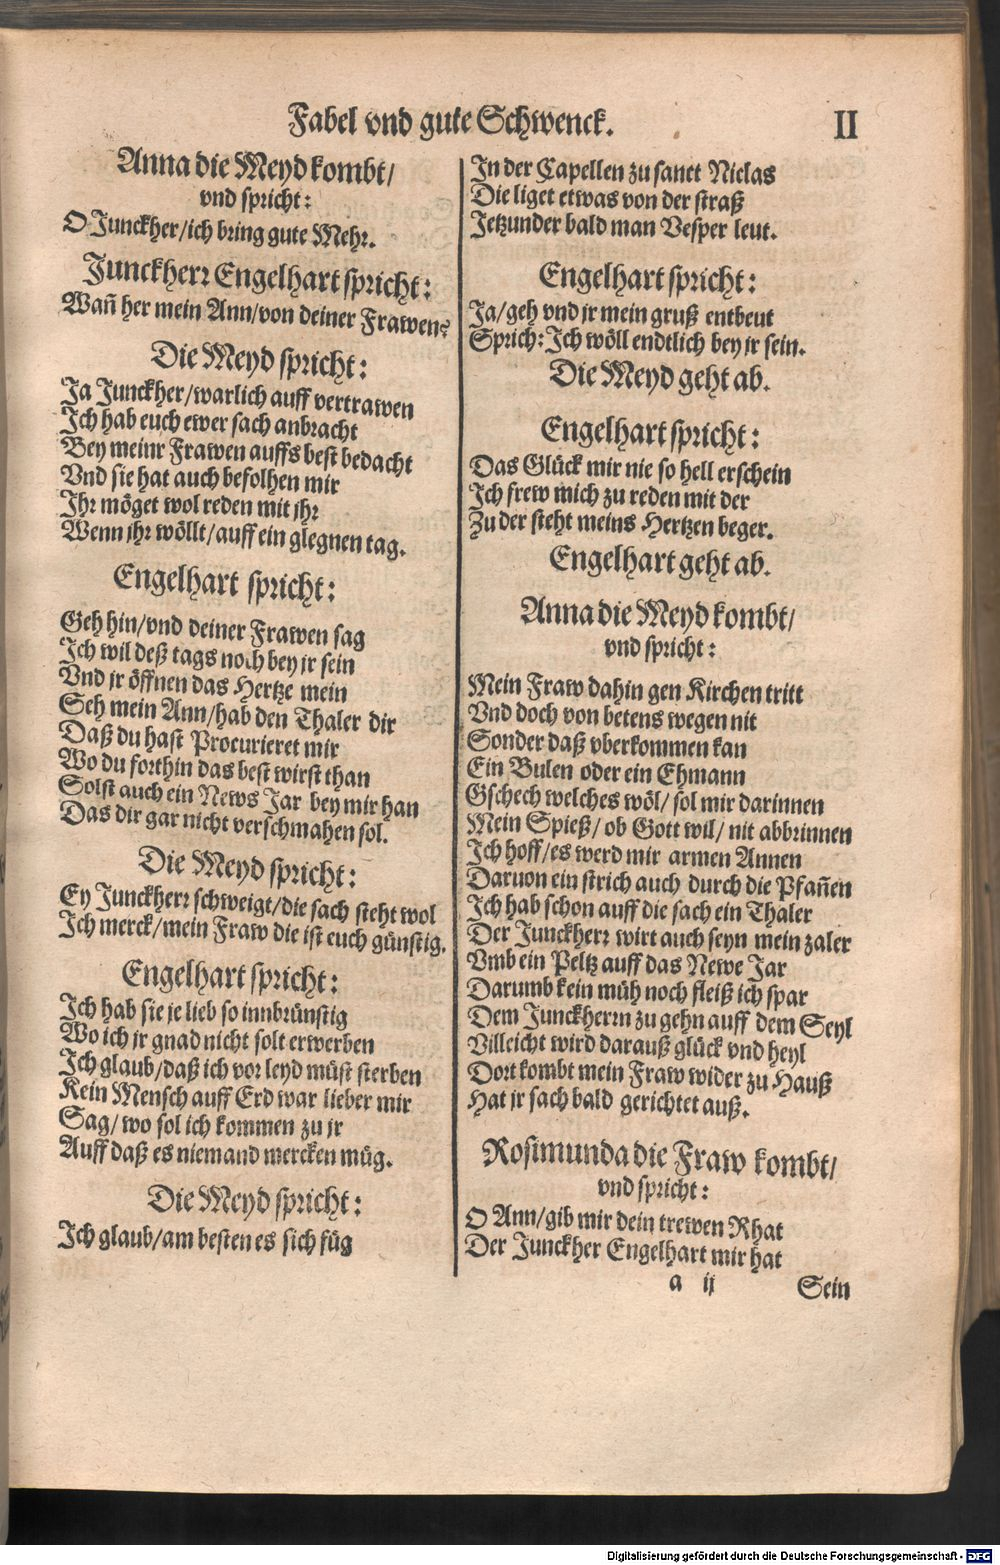 Fabel vnd gute Schwenck. II
Anna die Meyd kombt/
vnd spricht:
O Junckher/ich bring gute Mehr.
Junckherr Engelhart spricht:
Wañ her mein Ann/von deiner Frawen?
Die Meyd spricht:
Ja Junckher/warlich auff vertrawen
Ich hab euch ewer sach anbracht
Bey meinr Frawen auffs best bedacht
Vnd sie hat auch befolhen mir
Ihr möget wol reden mit ihr
Wenn ihr wöllt/auff ein glegnen tag.
Engelhart spricht:
Geh hin/vnd deiner Frawen sag
Ich wil deß tags noch bey jr sein
Vnd jr öffnen das Hertze mein
Seh mein Ann/hab den Thaler dir
Daß du hast Procurieret mir
Wo du forthin das best wirst than
Solst auch ein News Jar bey mir han
Das dir gar nicht verschmahen sol.
Die Meyd spricht:
Ey Junckherr schweigt/die sach steht wol
Ich merck/mein Fraw die ist euch günstig.
Engelhart spricht:
Ich hab sie je lieb so innbrünstig
Wo ich jr gnad nicht solt erwerben
Ich glaub/daß ich vor leyd müst sterben
Kein Mensch auff Erd war lieber mir
Sag/wo sol ich kommen zu jr
Auff daß es niemand mercken müg.
Die Meyd spricht:
Ich glaub/am besten es sich füg
In der Capellen zu sanct Niclas
Die liget etwas von der straß
Jetzunder bald man Vesper leut.
Engelhart spricht:
Ja/geh vnd jr mein gruß entbeut
Sprich: Ich wöll endtlich bey jr sein.
Die Meyd geht ab.
Engelhart spricht:
Das Glück mir nie so hell erschein
Ich frew mich zu reden mit der
Zu der steht meins Hertzen beger.
Engelhart geht ab.
Anna die Meyd kombt/
vnd spricht:
Mein Fraw dahin gen Kirchen tritt
Vnd doch von betens wegen nit
Sonder daß vberkommen kan
Ein Bulen oder ein Ehmann
Gschech welches wöl/ sol mir darinnen
Mein Spieß/ ob Gott wil/ nit abbrinnen
Ich hoff/es werd mir armen Annen
Daruon ein strich auch durch die Pfañen
Ich hab schon auff die sach ein Thaler
Der Junckherr wirt auch seyn mein zaler
Vmb ein Peltz auff das Newe Jar
Darumb kein müh noch fleiß ich spar
Dem Junckherrn zu gehn auff dem Seyl
Villeicht wird darauß glück vnd heyl
Dort kombt mein Fraw wider zu Hauß
Hat jr sach bald gerichtet auß.
Rosimunda die Fraw kombt/
vnd spricht:
O Ann/gib mir dein trewen Rhat
Der Junckher Engelhart mir hat
a ij Sein
Digitalisierung gefördert durch die Deutsche Forschungsgemeinschaft - DFG